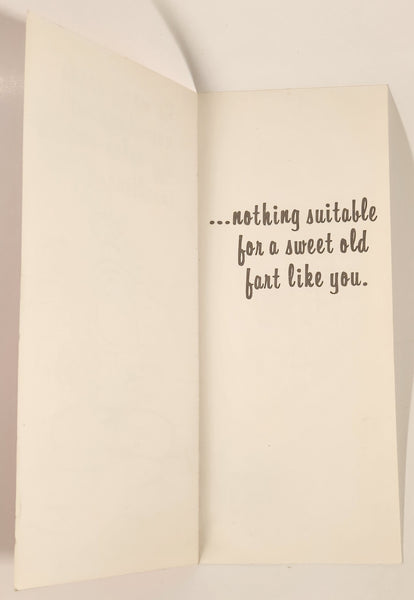 ...nothing suitable
for a sweet old
fart like you.